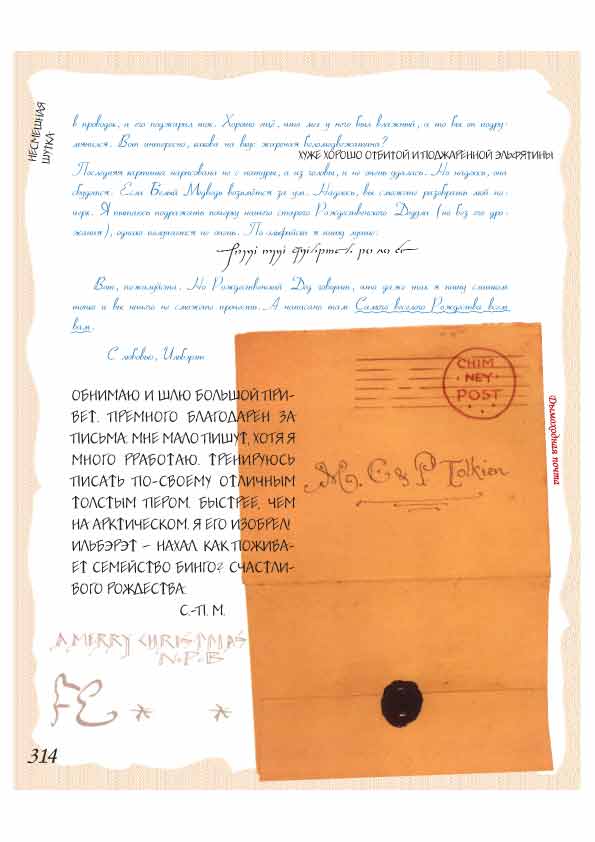 НЕСМЕШНАЯ
ШУТКА
в проводах, и его поджарил ток. Хорошо ещё, что мех у него был влажный, а то бы он подру-
мянился. Вот интересно, какова на вкус жареная беломедвежатина?
ХУЖЕ ХОРОШО ОТБИТОЙ И ПОДЖАРЕННОЙ ЭЛЬФЯТИНЫ
Последняя картинка нарисована не с натуры, а из головы, и не очень удалась. Но надеюсь, она
сбудется. Если Белый Медведь возьмётся за ум. Надеюсь, вы сможете разобрать мой по-
черк. Я пытаюсь подражать почерку нашего старого Рождественского Дедули (но без его дро-
жания), однако получается не очень. По-эльфийски я пишу лучше:
Вот, пожалуйста. Но Рождественский Дед говорит, что даже так я пишу слишком
тонко и вы ничего не сможете прочесть. А написано там Самого весёлого Рождества всем
вам.
С любовью, Ильбэрэт
ОБНИМАЮ И ШЛЮ БОЛЬШОЙ ПРИ-
ВЕТ. ПРЕМНОГО БЛАГОДАРЕН ЗА
ПИСЬМА. МНЕ МАЛО ПИШУТ, ХОТЯ Я
МНОГО РРАБОТАЮ. ТРЕНИРУЮСЬ
ПИСАТЬ ПО-СВОЕМУ ОТЛИЧНЫМ
ТОЛСТЫМ ПЕРОМ. БЫСТРЕЕ, ЧЕМ
НА АРКТИЧЕСКОМ. Я ЕГО ИЗОБРЕЛ!
ИЛЬБЭРЭТ – НАХАЛ. КАК ПОЖИВА-
ЕТ СЕМЕЙСТВО БИНГО? СЧАСТЛИ-
ВОГО РОЖДЕСТВА.
С.-П. М.
CHIM
NEY
POST
M. C & P Tolkien
Дымоходная почта
A MERRY CHRISTMAS
N.P.B
314